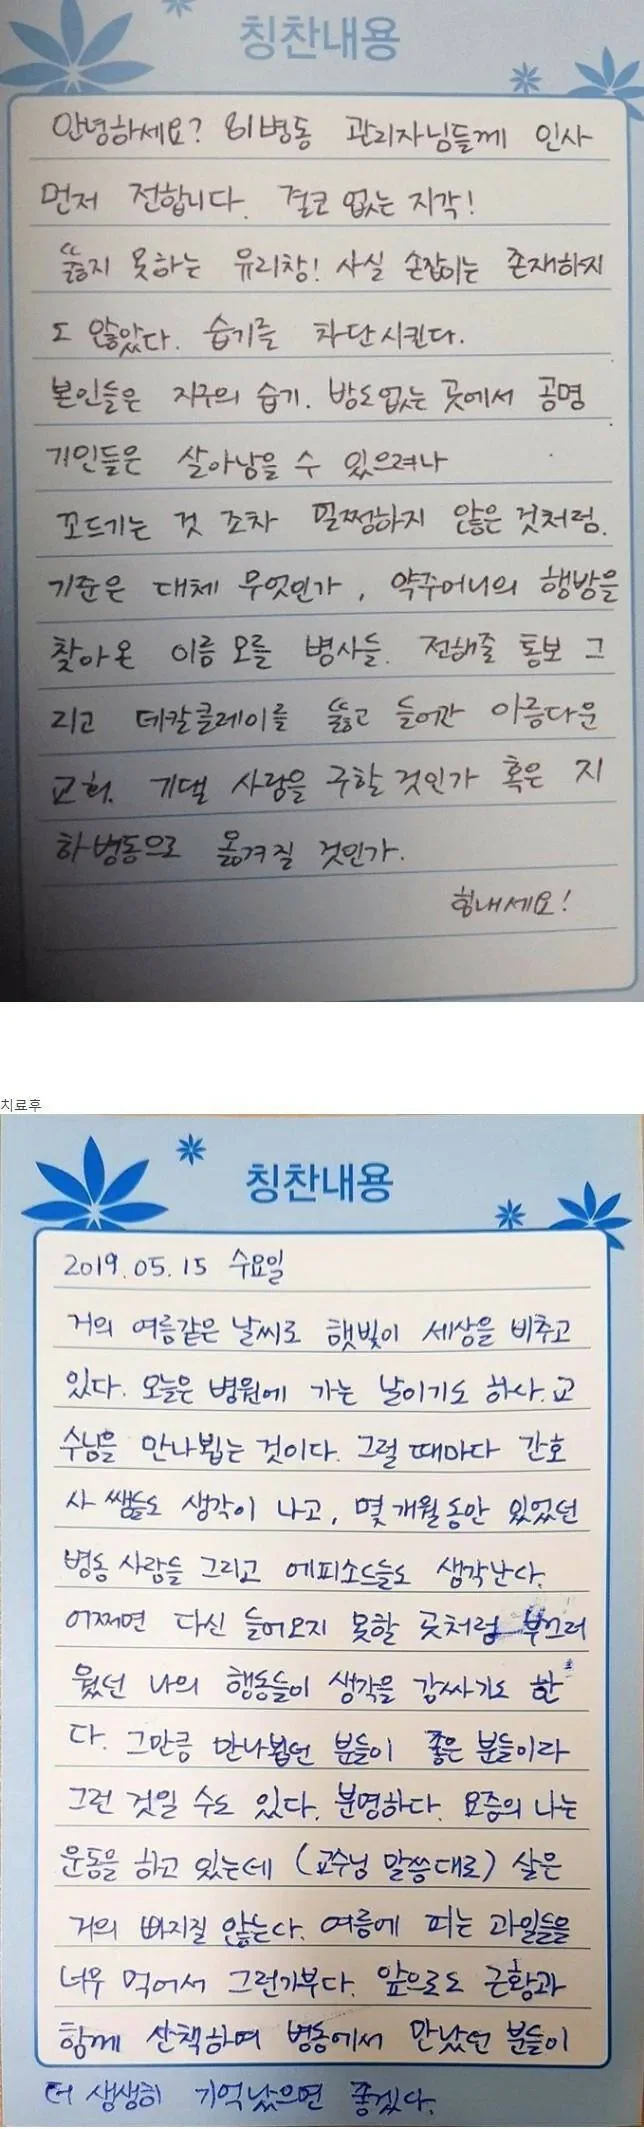 칭찬내용
안녕하세요? 81병동 관리자님들께 인사
먼저 전합니다. 결코 없는 지각!
"뚫지 못하는 유리창! 사실 손잡이는 존재하지
도 않았다. 습기를 차단시킨다.
본인들은 지구의 습기. 방도없는 곳에서 공명
기인들은 살아남을 수 있으려나
꼬드기는 것 조차 멀쩡하지 않은 것처럼.
기준은 대체 무엇인가, 약주머니의 행방을
찾아온 이름 모를 병사들. 전해줄 통보 그
리고 데칼클레이를 뚫고 들어간 아름다운
교회. 기댈 사람을 구할 것인가 혹은 지
하병동으로 옮겨질 것인가.
힘내세요!
치료후
칭찬내용
2019.05.15 수요일
거의 여름같은 날씨로 햇빛이 세상을 비추고
있다. 오늘은 병원에 가는 날이기도 하다. 교
수님을 만나뵙는 것이다. 그럴 때마다 간호
사 쌤들도 생각이 나고, 몇 개월동안 있었던
병동 사람들 그리고 에피소드들도 생각난다.
어쩌면 다신 들어오지 못할 곳처럼 부끄러
웠던 나의 행동들이 생각을 감싸기도 한
다. 그만큼 만나뵙던 분들이 좋은 분들이라
그런 것일 수도 있다. 분명하다. 요즘의 나는
운동을 하고 있는데 (교수님 말씀대로) 살은
거의 빠지질 않는다. 여름에 피는 과일들을
너무 먹어서 그런가부다. 앞으로도 근황과
함께 산책하며 병동에서 만났던 분들이
더 생생히 기억났으면 좋겠다.